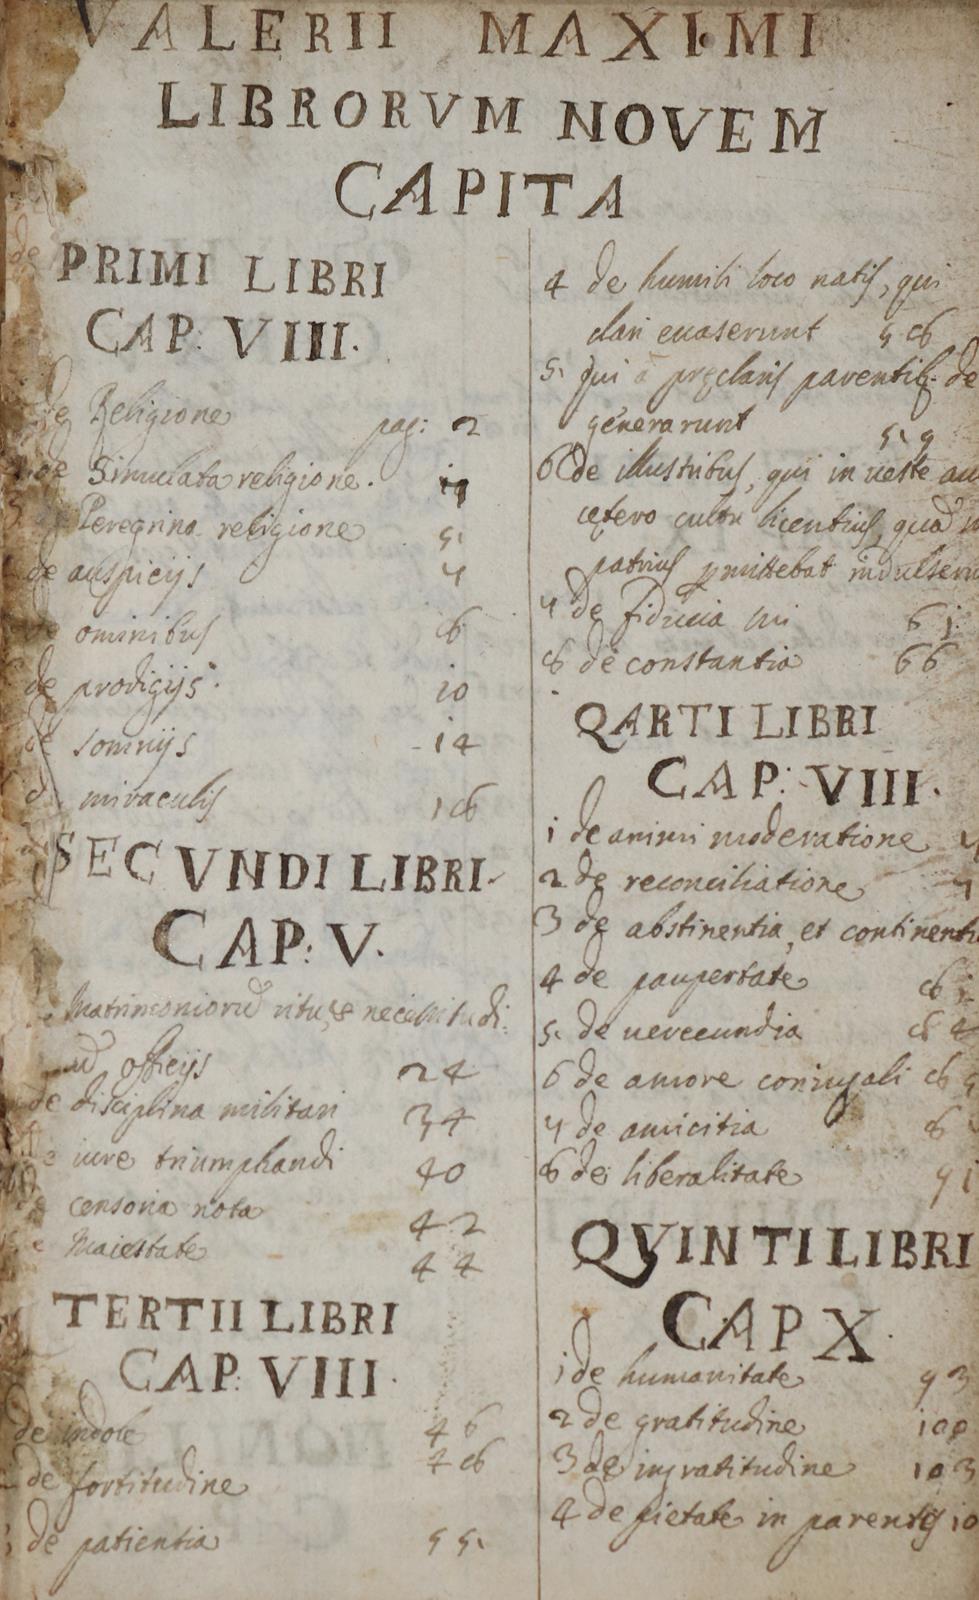 VALERII MAXIMI
LIBRORVM NOVEM
CAPITA
PRIMI LIBRI
CAP: VIII.
de Religione pag: 2
de Simulata religione.
Peregrina religione 5.
de auspicijs 7
de ominibus 8
de prodigijs. 10
de somnijs 14
miraculis 18
SECVNDI LIBRI.
CAP: V.
Matrimoniorũ ritu, & necessitudi:
officijs 24
de disciplina militari 34
iure triumphandi 40
censoria nota 42
Maiestate 44
TERTII LIBRI
CAP: VIII.
de indole 46
de fortitudine 48
de patientia 55.
4 de humili loco natis, qui
clari euaserunt 58
5. qui à pręclaris parentib. de
generarunt 59
6 de illustribus, qui in ueste au
cętero cultu licentius, quã
patrius ꝑmittebat indulserunt
7 de fiducia sui 61
8 de constantia 66
QARTI LIBRI
CAP: VIII.
1 de animi moderatione
2 de reconciliatione
3 de abstinentia, et continentia
4 de paupertate
5. de uerecundia 84
6 de amore coniugali
7 de amicitia
8 de liberalitate 91
QVINTI LIBRI
CAP X.
1 de humanitate 93
2 de gratitudine 100
3 de ingratitudine 103
4 de pietate in parentes